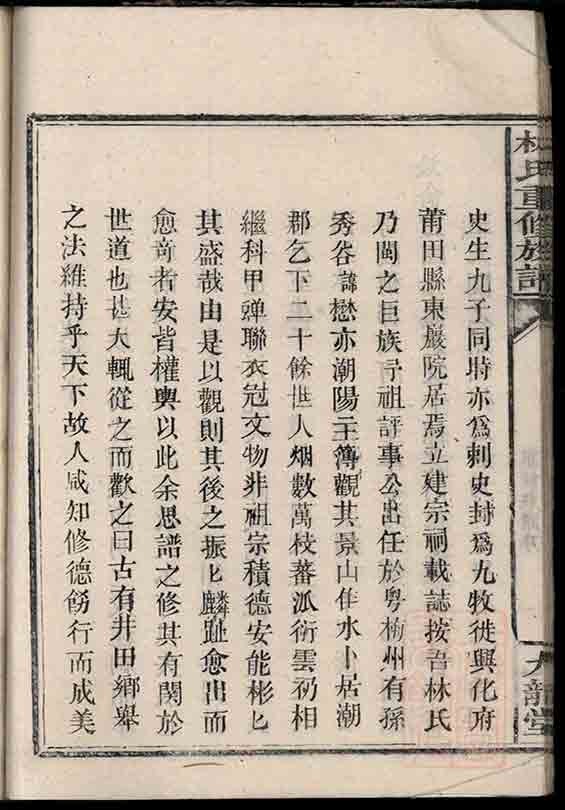 林氏重修族譜
九龍堂
史生九子同時亦爲刺史封爲九牧徙興化府
莆田縣東嚴院居焉立建宗祠載誌按吾林氏
乃閩之巨族㝵祖評事公出任於粵梅州有孫
秀谷諱懋亦潮陽主簿觀其景山佳水卜居潮
郡乞下二十餘世人烟數萬枝蕃派衍雲礽相
繼科甲蟬聯衣冠文物非祖宗積德安能彬匕
其盛哉由是以觀則其後之振匕麟趾愈出而
愈奇者安皆權輿以此余思譜之修其有関於
世道也甚大輒從之而歡之曰古有井田鄉舉
之法維持乎天下故人咸知修德飭行而成美